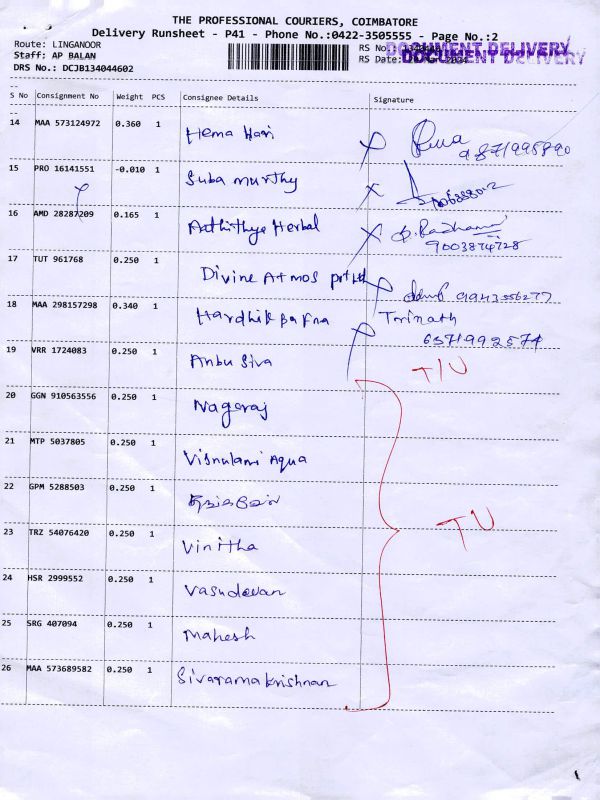 THE PROFESSIONAL COURIERS, COIMBATORE
Delivery Runsheet - P41 - Phone No.:0422-3505555 - Page No.:2
Route: LINGANOOR
Staff: AP BALAN
DRS No.: DCJB134044602
RS No.:
RS Date:
DOCUMENT DELIVERY
DOCUMENT DELIVERY
S No Consignment No Weight PCS Consignee Details Signature
14 MAA 573124972 0.360 1 Hema Hari
15 PRO 16141551 -0.010 1 Suba murthy
16 AMD 28287209 0.165 1 Aathithya Herbal
9003874728
17 TUT 961768 0.250 1 Divine Atmos pvt ltd
18 MAA 298157298 0.340 1 Hardhik Bafna Trinath
6371992574
19 VRR 1724083 0.250 1 Anbu Siva T/U
20 GGN 910563556 0.250 1 Nagaraj
21 MTP 5037805 0.250 1 Aqua
22 GPM 5288503 0.250 1
23 TRZ 54076420 0.250 1 Vinitha TU
24 HSR 2999552 0.250 1 Vasudevan
25 SRG 407094 0.250 1 Mahesh
26 MAA 573689582 0.250 1 Sivaramakrishnan